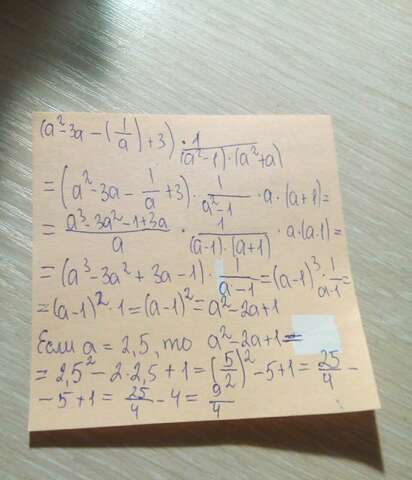 (a²-3a-(1/a)+3)·1/(a²-1)·(a²+a)
=(a²-3a-1/a+3)·1/(a²-1)·a·(a+1)=
=(a³-3a²-1+3a)/a·1/((a-1)·(a+1))·a·(a-1)=
=(a³-3a²+3a-1)·1/(a-1)=(a-1)³·1/(a-1)=
=(a-1)²·1=(a-1)²=a²-2a+1
Если a=2,5, то a²-2a+1=
=2,5²-2·2,5+1=(5/2)²-5+1=25/4-
-5+1=25/4-4=9/4